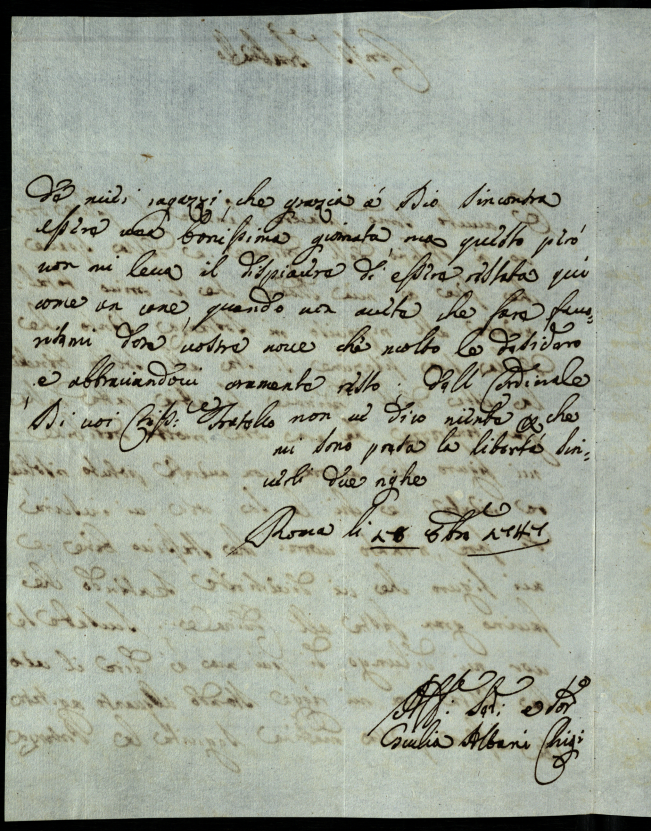 de miei ragazzi che grazia á Dio s'incontra
essere una bonissima giornata ma questo però
non mi leva il dispiacere di essere restata quì
come un cane, quando non avete che fare favo-
ritemi dare vostre nove che molto le desidero
e abbraciandovi caramente resto. Dall Cardinale
Di voi Cariss: Fratello non vi dico niente che
mi sono presa la libertà scri-
verli due righe
Roma li 18 8bre 1747
Aff: e
Cecilia Albani Chigi